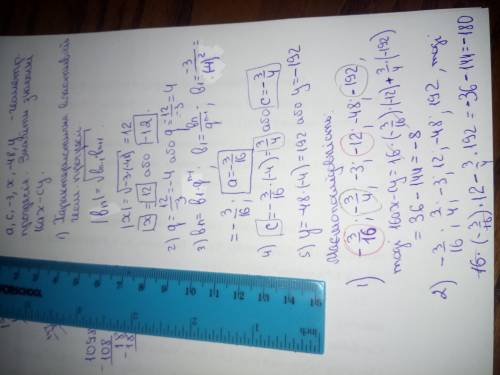 a, c, -3, x, -48, y - геометр.
прогресія. Знайти значення
16ax - cy.
1) Характеристична властивість
геом. прогресії
|bₙ| = √(bₙ₋₁ bₙ₊₁)
|x| = √(-3·(-48)) = 12
x = 12 або -12
2) q = 12/-3 = -4 або q = -12/-3 = 4
3) bₙ = b₁·qⁿ⁻¹, b₁ = bₙ/qⁿ⁻¹; b₁ = -3/(±4)² =
= -3/16; a = -3/16
4) c = -3/16·(-4) = 3/4 або c = -3/4
5) y = -48·(-4) = 192 або y = -192
Маємо послідовність:
1) -3/16; -3/4; -3; -12; -48; -192
тоді 16ax - cy = 16·(-3/16)·(-12) + 3/4·(-192)
= 36 - 144 = -8
2) -3/16; 3/4; -3; 12; -48; 192, тоді
16·(-3/16)·12 - 3/4·192 = -36 - 144 = -180
1098
-108
18
-18
1 2 3 4 5 6 7 8 9 10 11 12 13 14 15